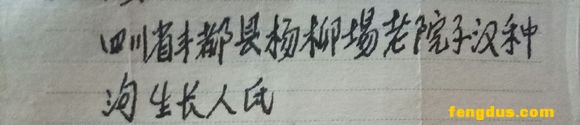 四川省丰都县杨柳場老院子汉种
沟生长人氏
fengdus.com